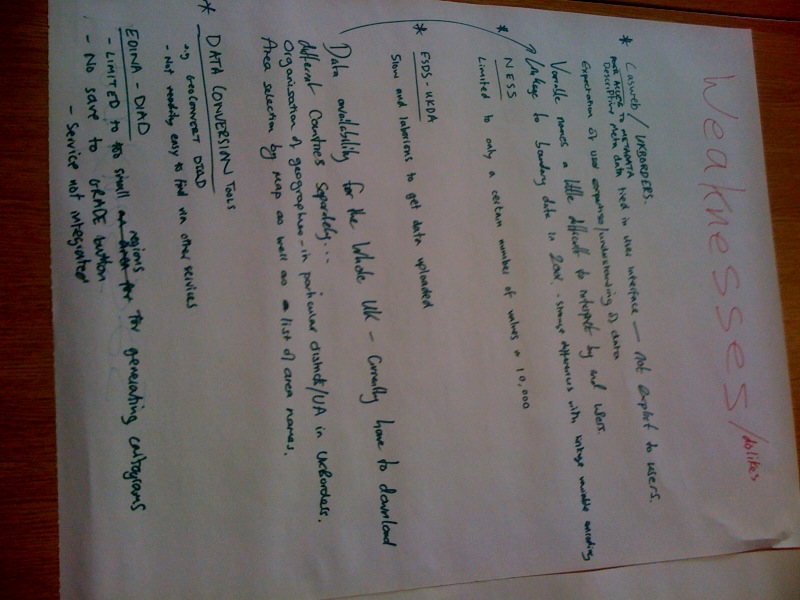 Weaknesses / dislikes
* Casweb / UKBORDERS.
POOR ACCESS TO METADATA
Descriptive Meta data tied in user interface — not explicit to users.
Expectation of user expertise/understanding of data
Variable names a little difficult to interpret by end users.
Linkage to boundary data in 2001. - strange differences with linkage variable encoding
* NESS
Limited to only a certain number of values = 10,000
* ESDS - UKDA
Slow and laborious to get data uploaded
Data availability for the Whole UK - Currently have to download
different Countries separately...
Organisation of geographies - in particular district/UA in UKBorders.
Area selection by map as well as a list of area names.
* DATA CONVERSION TOOLS
eg GEOCONVERT
- Not readily easy to find via other services
EDINA - DIAD
- LIMITED TO too small regions for generating cartograms
- No save to GRADE button
- Service not integrated